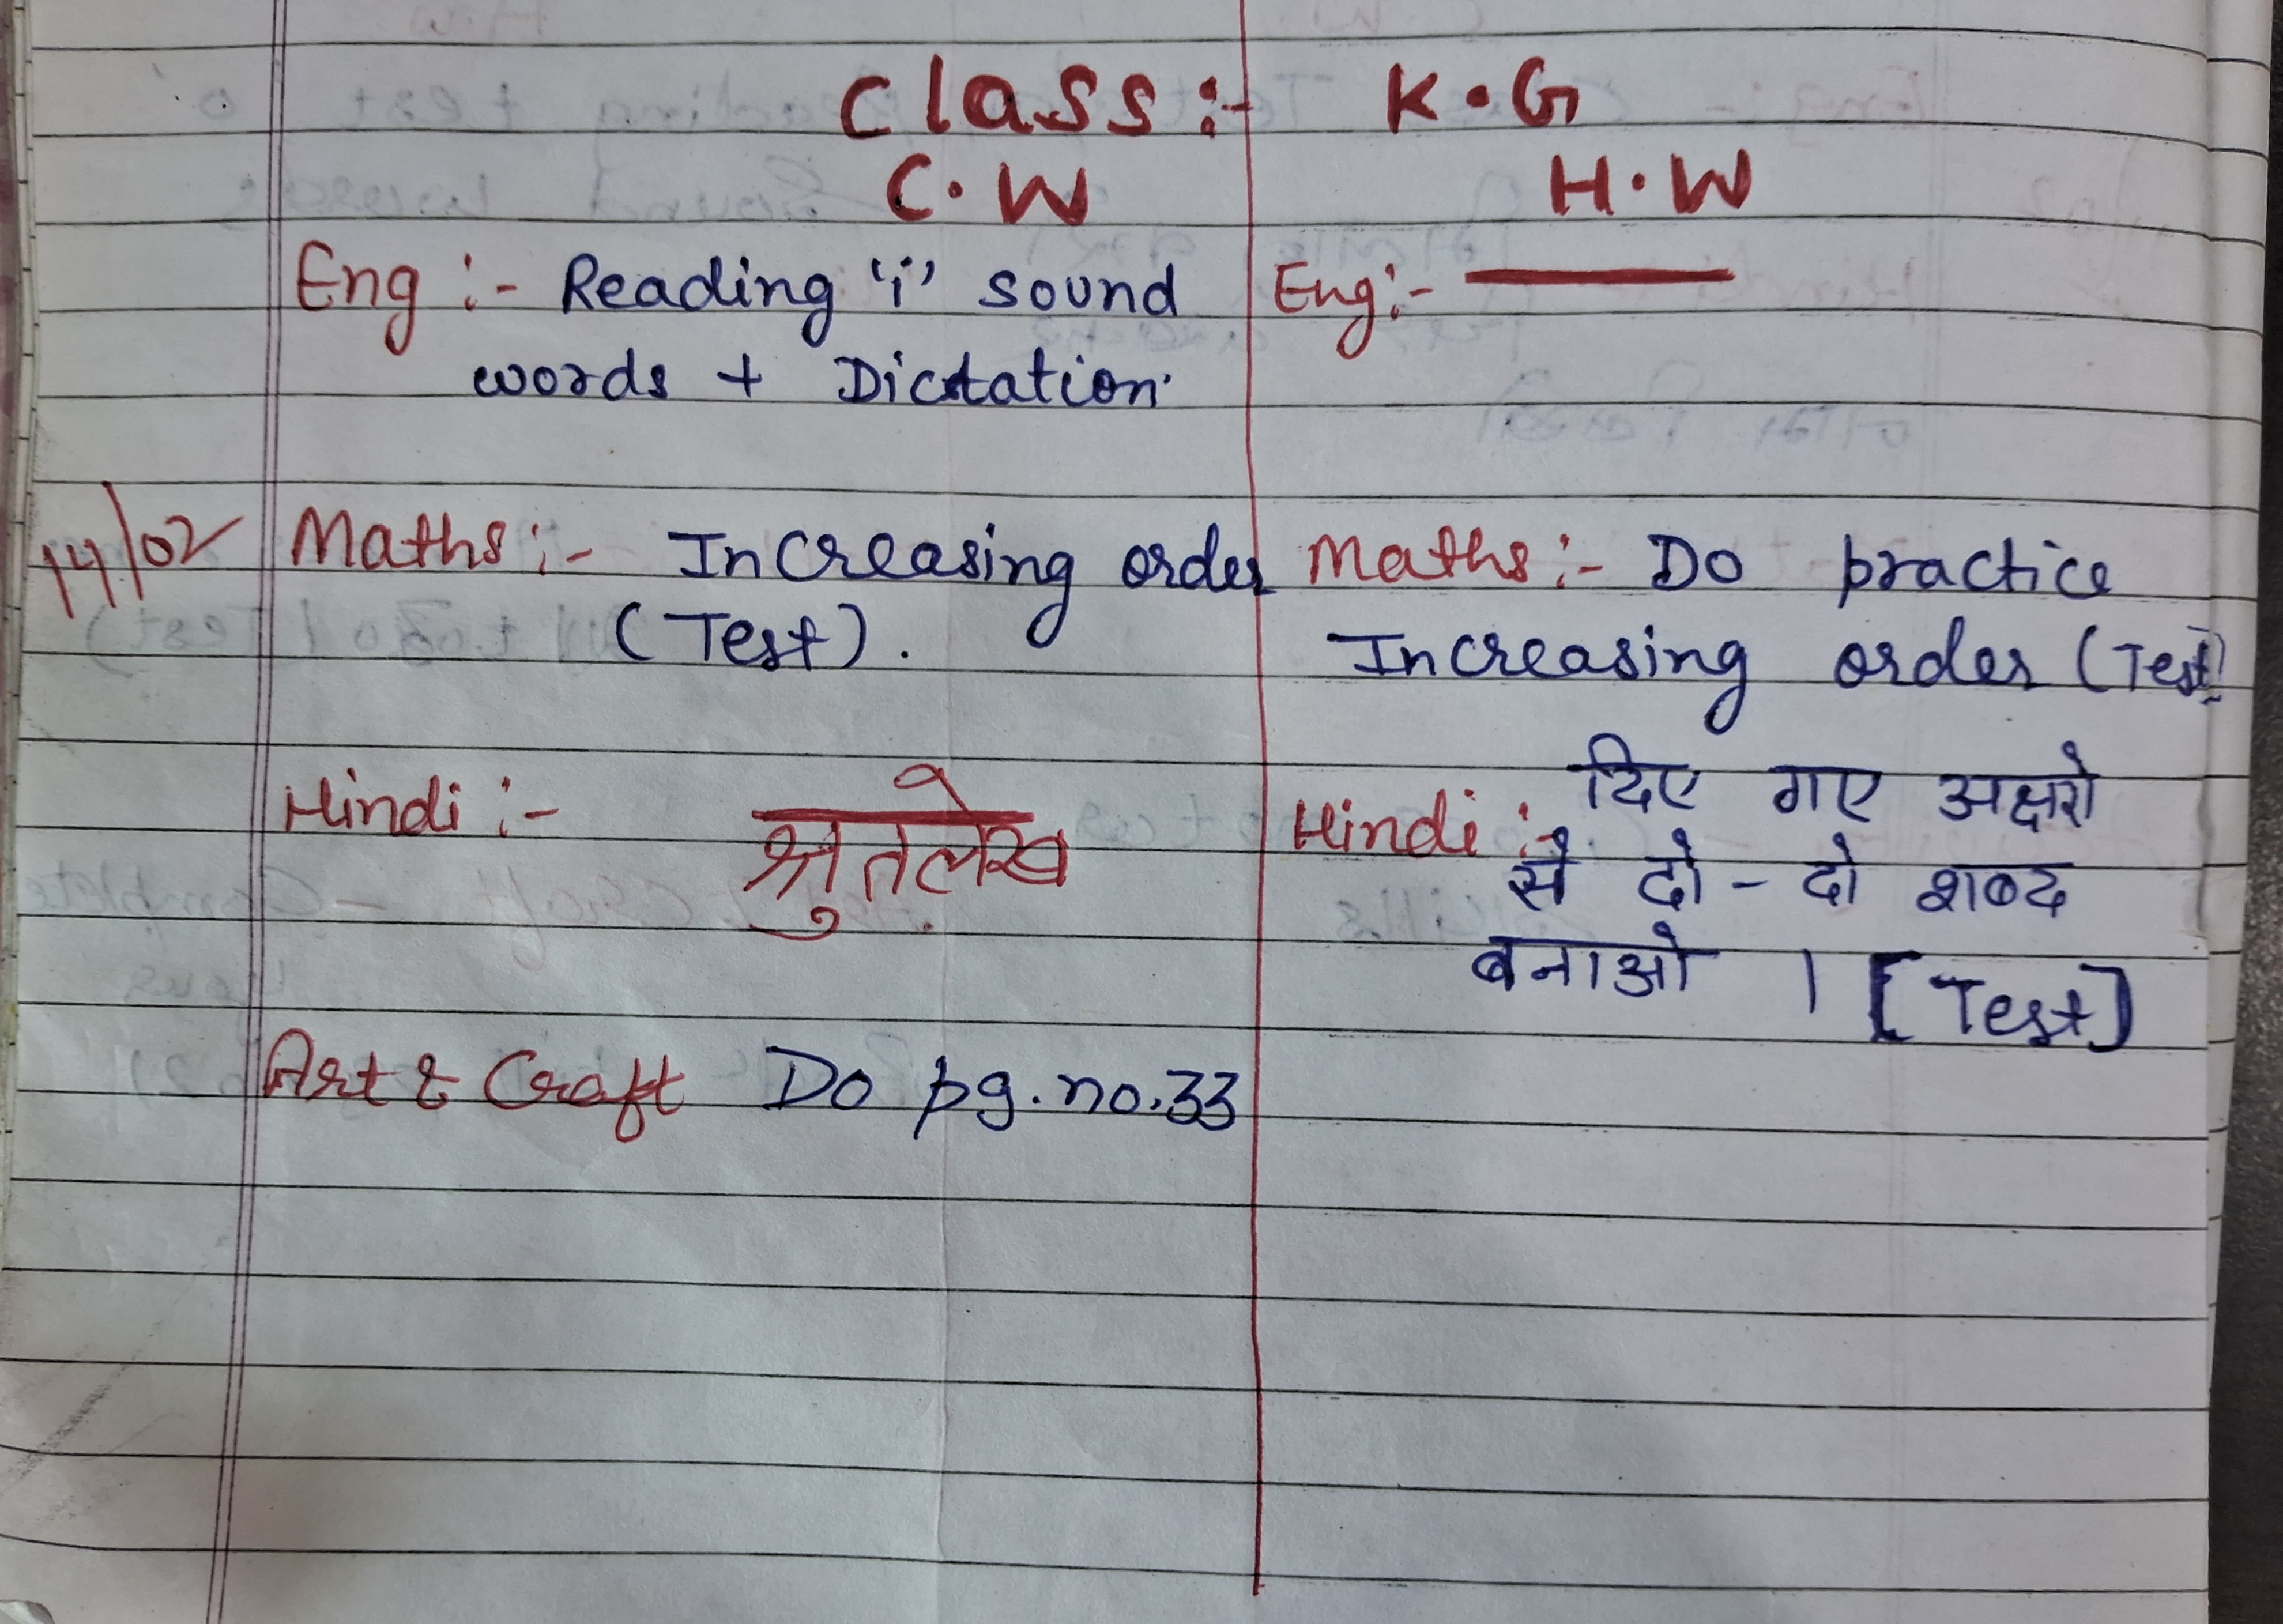 Class :- K.G
C.W
Eng :- Reading 'i' sound
words + Dictation.
14/02
Maths :- Increasing order
(Test).
Hindi :- श्रुतलेख
Art & Craft Do pg. no. 33
H.W
Eng :- ———
Maths :- Do practice
Increasing order (Test)
Hindi :- दिए गए अक्षरो
से दो - दो शब्द
बनाओ । [Test]